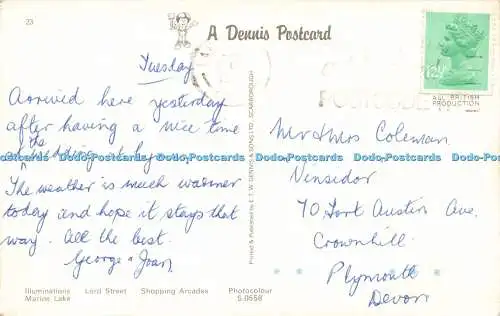 23
A Dennis Postcard
ALL BRITISH
PRODUCTION
Tuesday
Arrived here yesterday
after having a nice time
the
wedding
The weather is much warmer
today and hope it stays that
way. All the best.
George & Joan
Printed & Published by E. T. W. DENNIS & SONS LTD., SCARBOROUGH
Mr & Mrs Coleman
Vensidor
70 Fort Austin Ave.
Crownhill
Plymouth
Devon
Illuminations Lord Street Shopping Arcades Photocolour
Marine Lake S.0658
Dodo-Postcards Dodo-Postcards Dodo-Postcards Dodo-Postcards Dodo-Postcards